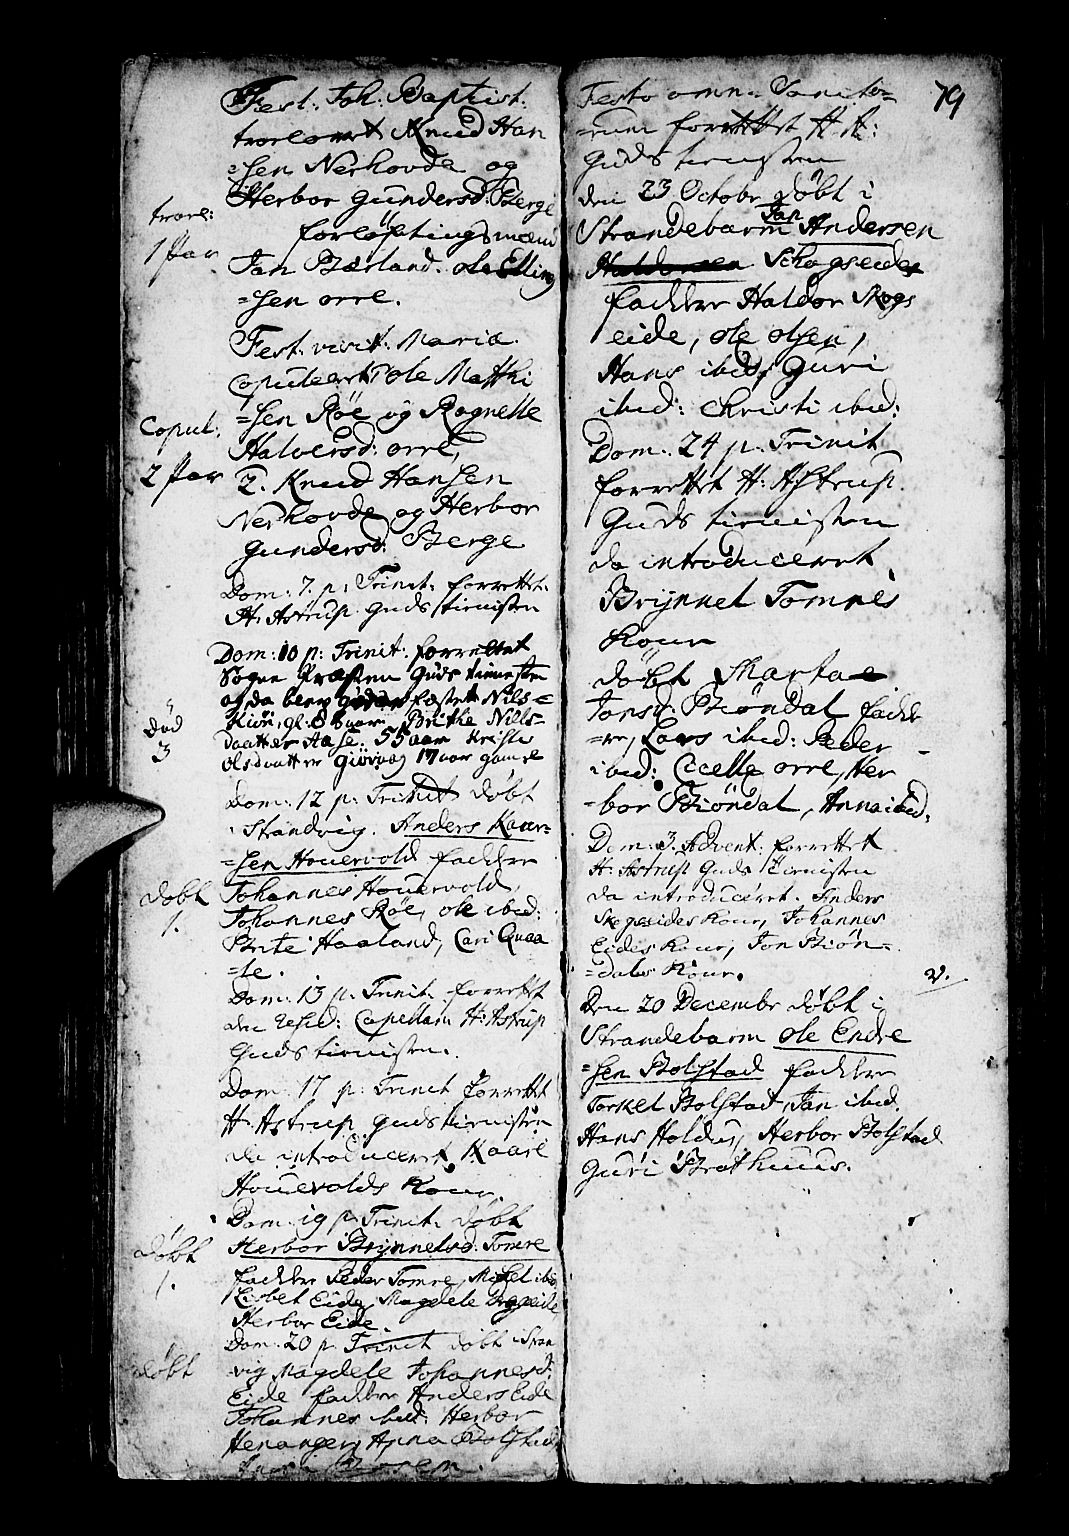 Fest: Joh: Baptist:
troelovet Knud Han
=sen Nerhovde og
Herbor Gundersd: Berge
troel:
1 Par
forløftingsmænd
Jan Bærland. ole Elling
=sen orre.
Fest: visit: Mariæ
Copuleert ole Matthi
=sen Røe og Ragnelle
Halversd: orre,
Copul:
2 Par
2. Knud Hansen
Nerhovde og Herbor
Gundersd: Berge
Dom: 7. p: Trinit: forrettet
H: Astrup Guds tienisten
Dom: 10 p: Trinit: forrettet
Sogne Præsten Guds tienesten
og da blev fæstet Nils=
gl: 8 aar Brithe Nills=
død
3
daatter Aase: 55 aar Kristi
olsdaatter Giøvaag 17 aar gamle
Dom: 12 p: Trinit døbt
i Strandvig. Anders Kaar=
=sen Houevold fadder
døbt
1.
Johannes Houevold,
Johannes Røe, ole ibid:
Brite Haaland, Cari Quaa
=le.
Dom: 13 p: Trinit. forrettet
den Capellan H: Astrup
Guds tienisten.
Dom: 17 p: Trinit forrettet
H: Astrup Guds tienisten
da introduceret Kaare
Houevolds Kone.
Dom: 19 p: Trinit: døbt
døbt
1.
Herbor Brynnelsd: Tomre
fadder Peder Tomre, Mickel ibid
Lisbet Eide, Magdele
Herbor Eide.
Dom: 20 p: Trinit døbt i Stran
døbt
vig Magdele Johannesd:
Eide fadder Anders Eide
Johannes ibid: Herbor
Henanger, Anna Bolstad
79
Festo omn: Sancto=
=rum forrettet H. A:
Guds tienisten
den 23 Octobr døbt i
Strandebarm Jan Andersen
Haldorsen Schogseide
fadder Haldor Skogs
eide, ole olsen,
Hans ibid, Guri
ibid: Christi ibid:
Dom: 24 p: Trinit
forrettet H: Astrup.
Guds tienisten
da introduceret
Brynnel Tomres
Kone
døbt Marta
Jonsd: Biøndal fadde
=re, Lars ibid: Peder
ibid: Cicelle orre, Her
=bor Biøndal, Anna ibid.
Dom: 3. Advent: forrettet
H: Astrup Guds Tienisten
da introduceret. Anders
Skogseides Kone, Johannes
Eides Kone, Jon Biøn=
=dals Kone.
v.
Den 20 Decembr døbt i
Strandebarm ole Endre
=sen Bolstad fadder
Torkel Bolstad, Jan ibid.
Hans Holdus, Herbor Bolstad
Guri Brathuus.